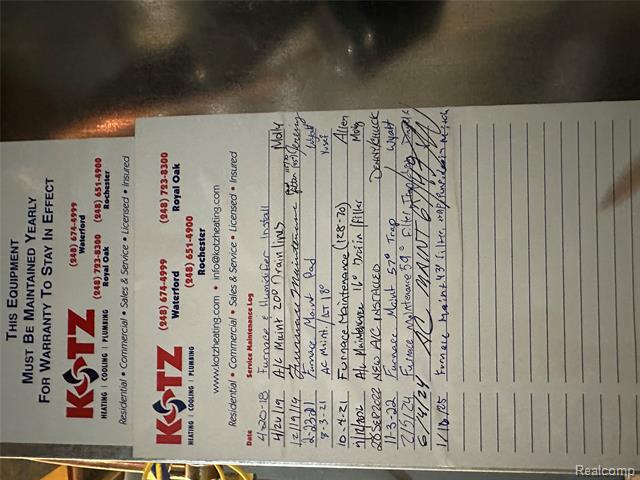 THIS EQUIPMENT
MUST BE MAINTAINED YEARLY
FOR WARRANTY TO STAY IN EFFECT
KOTZ
HEATING | COOLING | PLUMBING
(248) 674-4999
Waterford
(248) 723-8300
Royal Oak
(248) 651-4900
Rochester
Residential • Commercial • Sales & Service • Licensed • Insured
KOTZ
HEATING | COOLING | PLUMBING
(248) 674-4999
Waterford
(248) 723-8300
Royal Oak
(248) 651-4900
Rochester
www.kotzheating.com • info@kotzheating.com
Residential • Commercial • Sales & Service • Licensed • Insured
Date Service Maintenance Log
4-20-18 Furnace & Humidifier Install
4/26/19 A/C Maint 20° Drain lines Molly
12/19/19 Furnace Maintenance
2-23-21 Furnace Maint Pad Wyatt
Ac Maint. 18°
10-4-21 Furnace Maintenance (128-70) Allen
A/c Maintenance 16° Drain/filter
20 Sep 2022 NEW A/C INSTALLED DENNY/CHUCK
11-3-22 Furnace Maint 57° Trap Wyatt
2/5/24 Furnace Maintenance 59° Filter
6/14/24 AC MAINT
1/10/25 Furnace maint 43° Filter Mitch
Realcomp